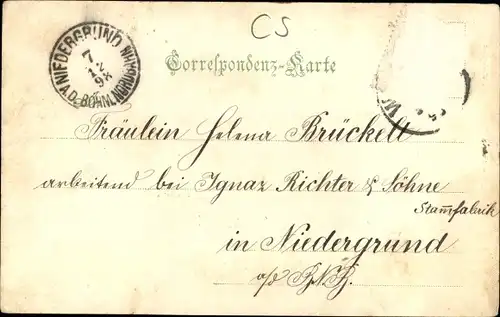 CS
NIEDERGRUND
A.D. BÖHM. NORDBAHN
7
12
98
Correspondenz-Karte
Fräulein Helena Brückelt
arbeitend bei Ignaz Richter & Söhne
Stam̅fabrik
in Niedergrund
a/d B.N.B.